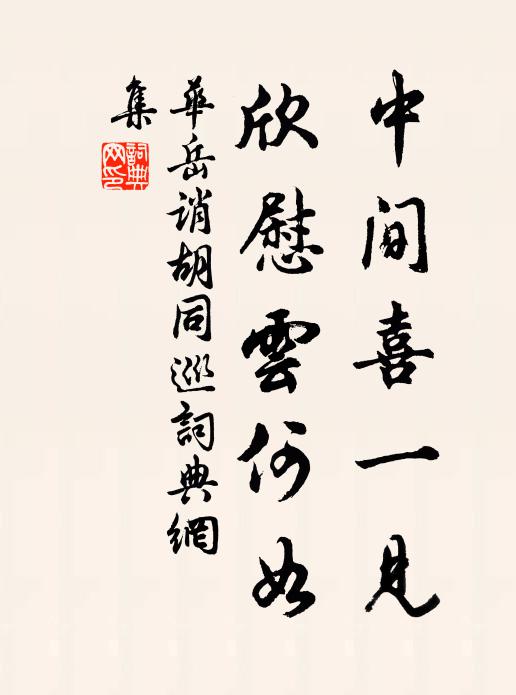 中间喜一見
欣慰雲何如
華岳誚胡同巡詞典網
集
詞典
网印